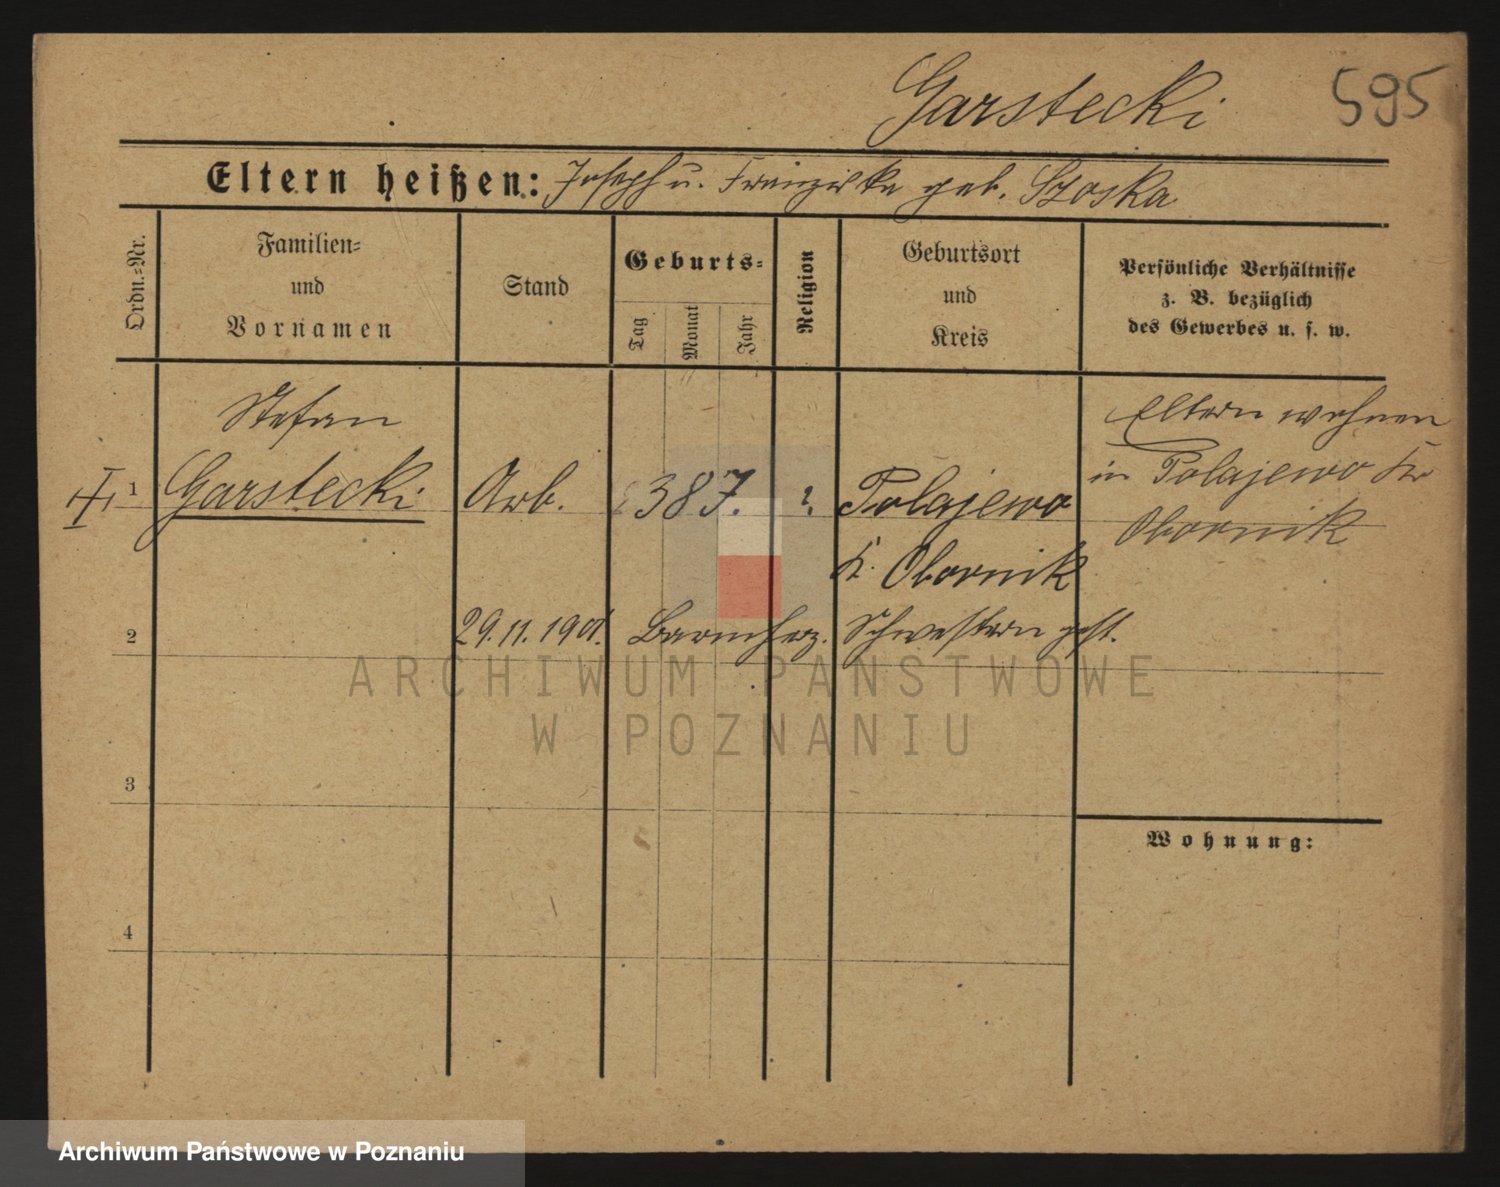 Garstecki 595
Eltern heißen: Joseph u. Franziska geb. Szoska
Ordn.-Nr.
Familien-
und
Vornamen
Stand
Geburts-
Tag
Monat
Jahr
Religion
Geburtsort
und
Kreis
Persönliche Verhältnisse
z. B. bezüglich
des Gewerbes u. s. w.
Stefan
1 Garstecki Arb. 387. ?. Polajewo
K. Obornik
Eltern wohnen
in Polajewo Kr
Obornik
2 29.11.1901. Barmherz. Schwestern gest.
3
4
Wohnung:
ARCHIWUM PAŃSTWOWE
W POZNANIU
Archiwum Państwowe w Poznaniu